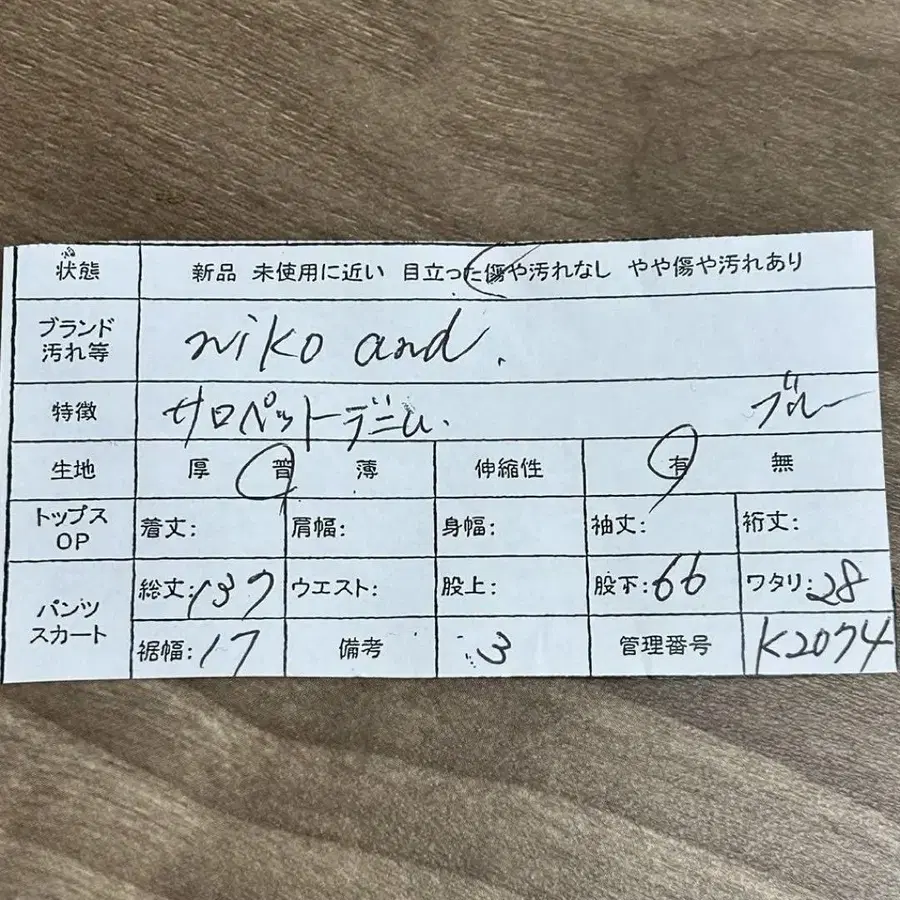 状態 新品 未使用に近い 目立った傷や汚れなし やや傷や汚れあり
ブランド
汚れ等 niko and.
特徴 サロペットデニム. ブルー
生地 厚 普 薄 伸縮性 有 無
トップス
OP 着丈: 肩幅: 身幅: 袖丈: 裄丈:
パンツ
スカート 総丈:137 ウエスト: 股上: 股下:66 ワタリ:28
裾幅:17 備考 3 管理番号 K2074